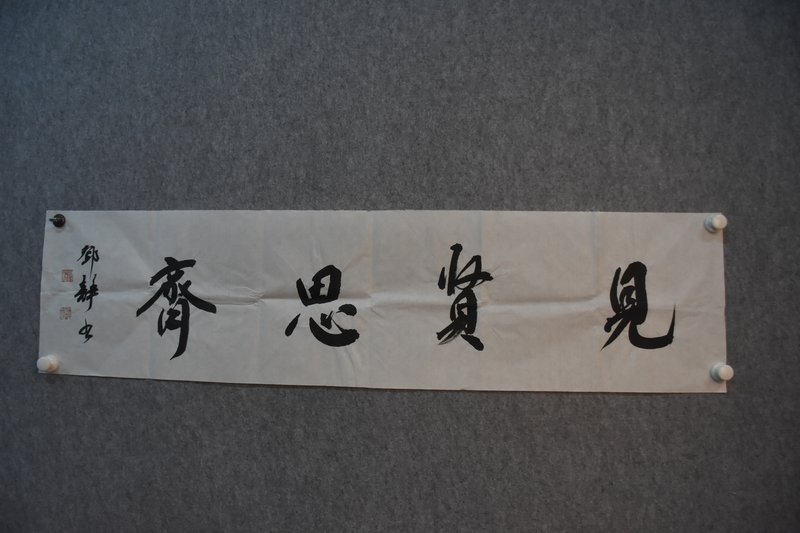 見賢思齊
鄧靜书